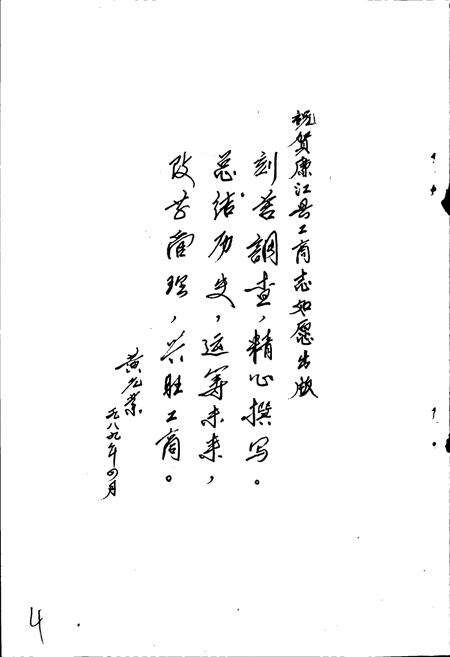 祝贺廉江县工商志如愿出版
刻苦調查,精心撰写。
总结历史,运筹未来,
改善管理,兴旺工商。
黄
一九八九年四月
4